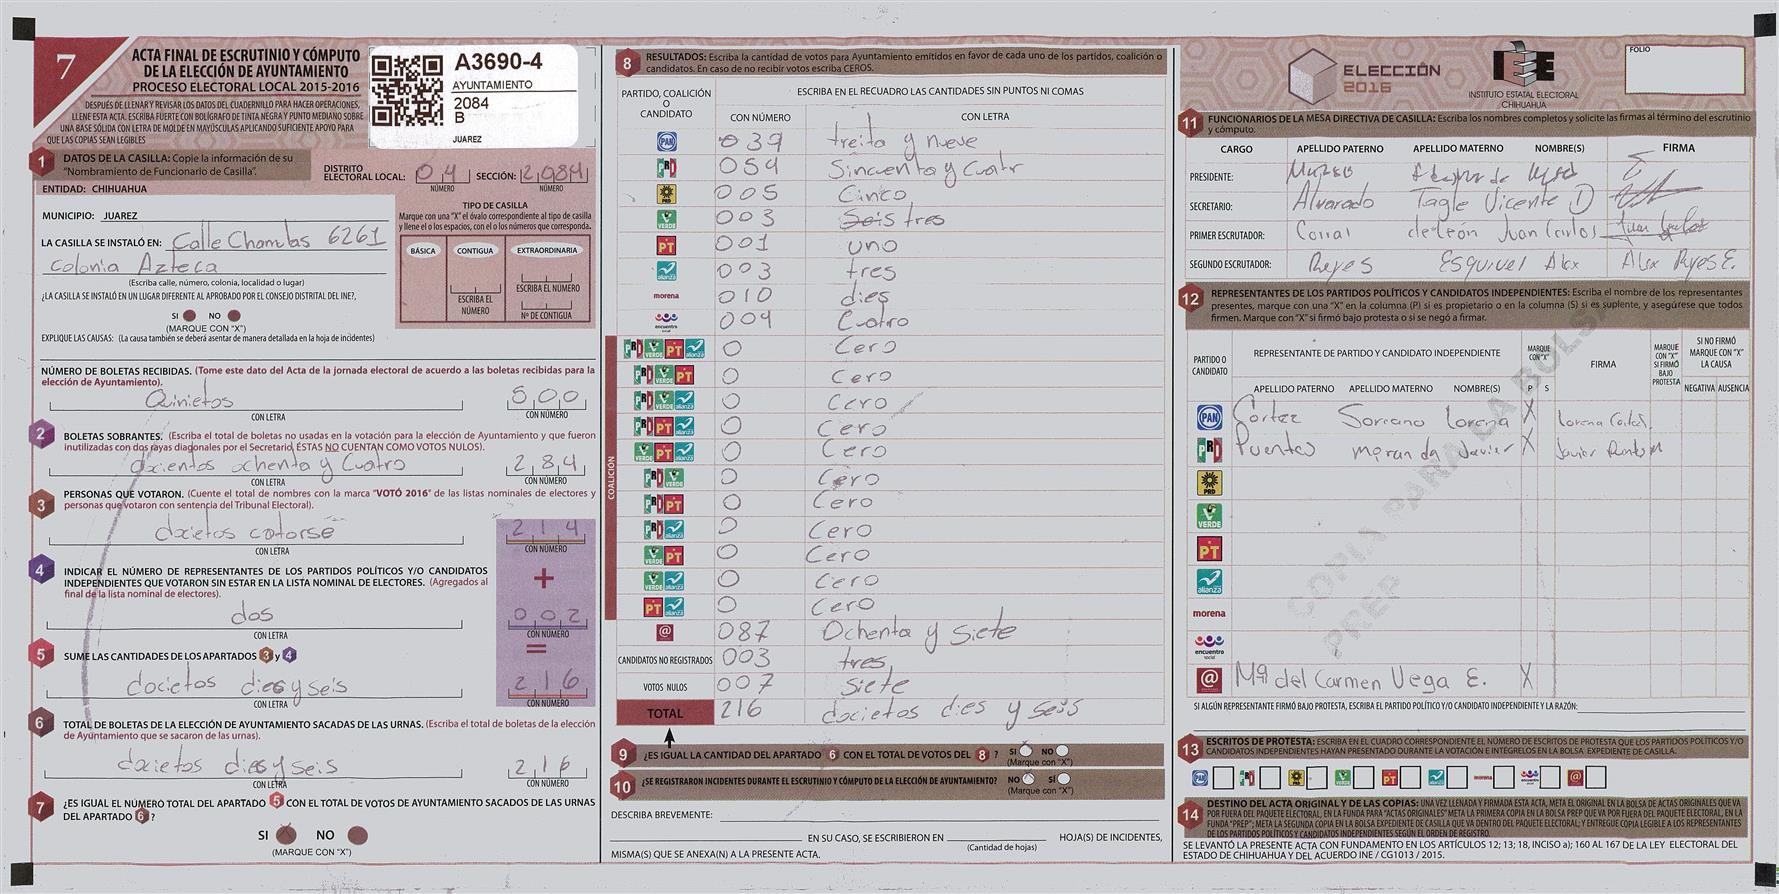 7
ACTA FINAL DE ESCRUTINIO Y CÓMPUTO
DE LA ELECCIÓN DE AYUNTAMIENTO
PROCESO ELECTORAL LOCAL 2015-2016
DESPUÉS DE LLENAR Y REVISAR LOS DATOS DEL CUADERNILLO PARA HACER OPERACIONES,
LLENE ESTA ACTA. ESCRIBA FUERTE CON BOLÍGRAFO DE TINTA NEGRA Y PUNTO MEDIANO SOBRE
UNA BASE SÓLIDA CON LETRA DE MOLDE EN MAYÚSCULAS APLICANDO SUFICIENTE APOYO PARA
QUE LAS COPIAS SEAN LEGIBLES
A3690-4
AYUNTAMIENTO
2084
B
JUAREZ
1 DATOS DE LA CASILLA: Copie la información de su
"Nombramiento de Funcionario de Casilla".
DISTRITO ELECTORAL LOCAL: 04 SECCIÓN: 2084
NÚMERO NÚMERO
ENTIDAD: CHIHUAHUA
MUNICIPIO: JUAREZ
LA CASILLA SE INSTALÓ EN: Calle Chamulas 6261
Colonia Azteca
(Escriba calle, número, colonia, localidad o lugar)
¿LA CASILLA SE INSTALÓ EN UN LUGAR DIFERENTE AL APROBADO POR EL CONSEJO DISTRITAL DEL INE?,
SI NO
(MARQUE CON "X")
EXPLIQUE LAS CAUSAS: (La causa también se deberá asentar de manera detallada en la hoja de incidentes)
TIPO DE CASILLA
Marque con una "X" el óvalo correspondiente al tipo de casilla
y llene el o los espacios, con el o los números que corresponda.
BÁSICA CONTIGUA EXTRAORDINARIA
ESCRIBA EL NÚMERO
ESCRIBA EL NÚMERO
Nº DE CONTIGUA
NÚMERO DE BOLETAS RECIBIDAS. (Tome este dato del Acta de la jornada electoral de acuerdo a las boletas recibidas para la
elección de Ayuntamiento).
Quinietos 500
CON LETRA CON NÚMERO
2 BOLETAS SOBRANTES. (Escriba el total de boletas no usadas en la votación para la elección de Ayuntamiento y que fueron
inutilizadas con dos rayas diagonales por el Secretario ÉSTAS NO CUENTAN COMO VOTOS NULOS).
docientos ochenta y Cuatro 284
CON LETRA CON NÚMERO
3 PERSONAS QUE VOTARON. (Cuente el total de nombres con la marca "VOTÓ 2016" de las listas nominales de electores y
personas que votaron con sentencia del Tribunal Electoral).
docietos catorse 214
CON LETRA CON NÚMERO
4 INDICAR EL NÚMERO DE REPRESENTANTES DE LOS PARTIDOS POLÍTICOS Y/O CANDIDATOS
INDEPENDIENTES QUE VOTARON SIN ESTAR EN LA LISTA NOMINAL DE ELECTORES. (Agregados al
final de la lista nominal de electores).
+
dos 002
CON LETRA CON NÚMERO
=
5 SUME LAS CANTIDADES DE LOS APARTADOS 3 y 4
docietos dies y seis 216
CON LETRA CON NÚMERO
6 TOTAL DE BOLETAS DE LA ELECCIÓN DE AYUNTAMIENTO SACADAS DE LAS URNAS. (Escriba el total de boletas de la elección
de Ayuntamiento que se sacaron de las urnas).
docietos dies y seis 216
CON LETRA CON NÚMERO
7 ¿ES IGUAL EL NÚMERO TOTAL DEL APARTADO 5 CON EL TOTAL DE VOTOS DE AYUNTAMIENTO SACADOS DE LAS URNAS
DEL APARTADO 6?
SI X NO
(MARQUE CON "X")
8 RESULTADOS: Escriba la cantidad de votos para Ayuntamiento emitidos en favor de cada uno de los partidos, coalición o
candidatos. En caso de no recibir votos escriba CEROS.
PARTIDO, COALICIÓN O CANDIDATO
ESCRIBA EN EL RECUADRO LAS CANTIDADES SIN PUNTOS NI COMAS
CON NÚMERO CON LETRA
PAN 039 treita y nueve
PRI 054 Sincuenta y Cuatr
PRD 005 Cinco
VERDE 003 Seis tres
PT 001 uno
alianza 003 tres
morena 010 dies
encuentro social 004 Cuatro
COALICIÓN
PRI VERDE PT alianza 0 Cero
PRI VERDE PT 0 Cero
PRI VERDE alianza 0 Cero
PRI PT alianza 0 Cero
VERDE PT alianza 0 Cero
PRI VERDE 0 Cero
PRI PT 0 Cero
PRI alianza 0 Cero
VERDE PT 0 Cero
VERDE alianza 0 Cero
PT alianza 0 Cero
@ 087 Ochenta y Siete
CANDIDATOS NO REGISTRADOS 003 tres
VOTOS NULOS 007 Siete
TOTAL 216 docietos dies y seis
9 ¿ES IGUAL LA CANTIDAD DEL APARTADO 6 CON EL TOTAL DE VOTOS DEL 8? SI NO
(Marque con "X")
10 ¿SE REGISTRARON INCIDENTES DURANTE EL ESCRUTINIO Y CÓMPUTO DE LA ELECCIÓN DE AYUNTAMIENTO? NO SÍ
(Marque con "X")
DESCRIBA BREVEMENTE:
EN SU CASO, SE ESCRIBIERON EN HOJA(S) DE INCIDENTES,
(Cantidad de hojas)
MISMA(S) QUE SE ANEXA(N) A LA PRESENTE ACTA.
ELECCIÓN 2016
IEE
INSTITUTO ESTATAL ELECTORAL
CHIHUAHUA
FOLIO
11 FUNCIONARIOS DE LA MESA DIRECTIVA DE CASILLA: Escriba los nombres completos y solicite las firmas al término del escrutinio
y cómputo.
CARGO APELLIDO PATERNO APELLIDO MATERNO NOMBRE(S) FIRMA
PRESIDENTE:
SECRETARIO: Alvarado Tagle Vicente D
PRIMER ESCRUTADOR: Corral de León Juan Carlos
SEGUNDO ESCRUTADOR: Reyes Esquivel Alex Alex Reyes E.
12 REPRESENTANTES DE LOS PARTIDOS POLÍTICOS Y CANDIDATOS INDEPENDIENTES: Escriba el nombre de los representantes
presentes, marque con una "X" en la columna (P) si es propietario o en la columna (S) si es suplente, y asegúrese que todos
firmen. Marque con "X" si firmó bajo protesta o si se negó a firmar.
PARTIDO O CANDIDATO
REPRESENTANTE DE PARTIDO Y CANDIDATO INDEPENDIENTE
MARQUE CON "X"
FIRMA
MARQUE CON "X" SI FIRMÓ BAJO PROTESTA
SI NO FIRMÓ MARQUE CON "X" LA CAUSA
APELLIDO PATERNO APELLIDO MATERNO NOMBRE(S) P S NEGATIVA AUSENCIA
PAN Cortez Soreano Lorena X Lorena Cortez
PRI Puentes Miranda Javier X Javier
PRD
VERDE
PT
alianza
morena
encuentro social
@ Mª del Carmen Vega E. X
COPIA PARA LA BOLSA
PREP
SI ALGÚN REPRESENTANTE FIRMÓ BAJO PROTESTA, ESCRIBA EL PARTIDO POLÍTICO Y/O CANDIDATO INDEPENDIENTE Y LA RAZÓN:
13 ESCRITOS DE PROTESTA: ESCRIBA EN EL CUADRO CORRESPONDIENTE EL NÚMERO DE ESCRITOS DE PROTESTA QUE LOS PARTIDOS POLÍTICOS Y/O
CANDIDATOS INDEPENDIENTES HAYAN PRESENTADO DURANTE LA VOTACIÓN E INTÉGRELOS EN LA BOLSA EXPEDIENTE DE CASILLA.
PAN PRI PRD VERDE PT alianza morena encuentro social @
14 DESTINO DEL ACTA ORIGINAL Y DE LAS COPIAS: UNA VEZ LLENADA Y FIRMADA ESTA ACTA, META EL ORIGINAL EN LA BOLSA DE ACTAS ORIGINALES QUE VA
POR FUERA DEL PAQUETE ELECTORAL, EN LA FUNDA "ACTAS ORIGINALES" META LA PRIMERA COPIA EN LA BOLSA PREP QUE VA POR FUERA DEL PAQUETE ELECTORAL, EN LA
FUNDA "PREP"; META LA SEGUNDA COPIA EN LA BOLSA EXPEDIENTE DE CASILLA QUE VA DENTRO DEL PAQUETE ELECTORAL; Y ENTREGUE COPIA LEGIBLE A LOS REPRESENTANTES
DE LOS PARTIDOS POLÍTICOS Y CANDIDATOS INDEPENDIENTES SEGÚN EL ORDEN DE REGISTRO.
SE LEVANTÓ LA PRESENTE ACTA CON FUNDAMENTO EN LOS ARTÍCULOS 12; 13; 18, INCISO a); 160 AL 167 DE LA LEY ELECTORAL DEL
ESTADO DE CHIHUAHUA Y DEL ACUERDO INE / CG1013 / 2015.